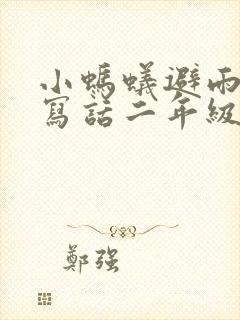 小螞蟻避雨
寫話二年級
鄭强